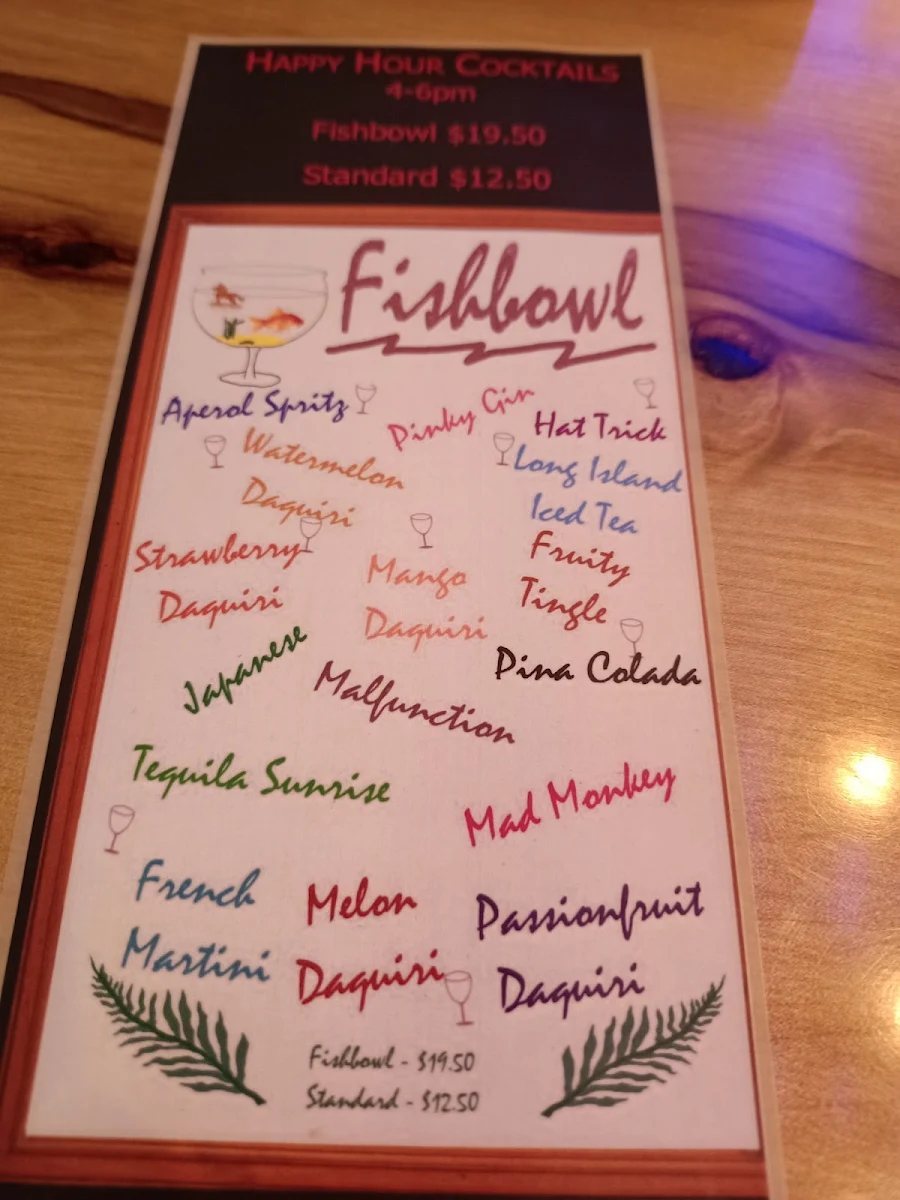 HAPPY HOUR COCKTAILS
4-6pm
Fishbowl $19.50
Standard $12.50
Fishbowl
Aperol Spritz
Pinky Gin
Hat Trick
Watermelon
Daquiri
Long Island
Iced Tea
Strawberry
Daquiri
Mango
Daquiri
Fruity
Tingle
Pina Colada
Japanese
Malfunction
Tequila Sunrise
Mad Monkey
French
Martini
Melon
Daquiri
Passionfruit
Daquiri
Fishbowl - $19.50
Standard - $12.50